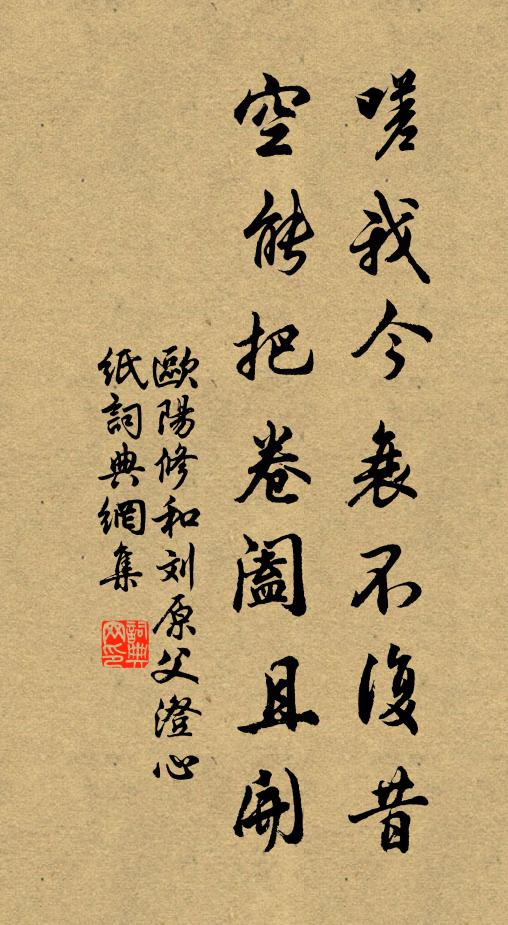 嗟我今衰不復昔
空能把卷闔且開
歐陽修和刘原父澄心
紙詞典網集
詞典
网印